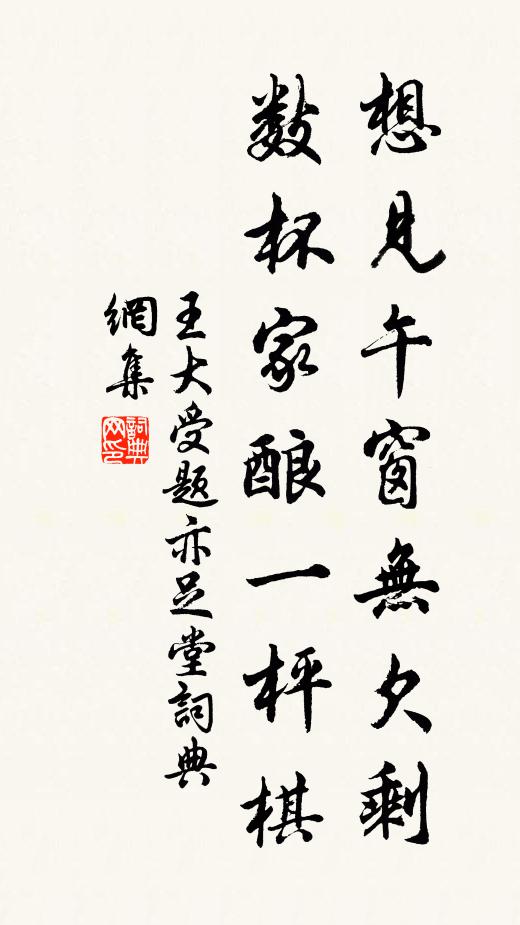 想見午窗無欠剩
数杯家酿一枰棋
王大受题亦足堂詞典
網集
詞典网印